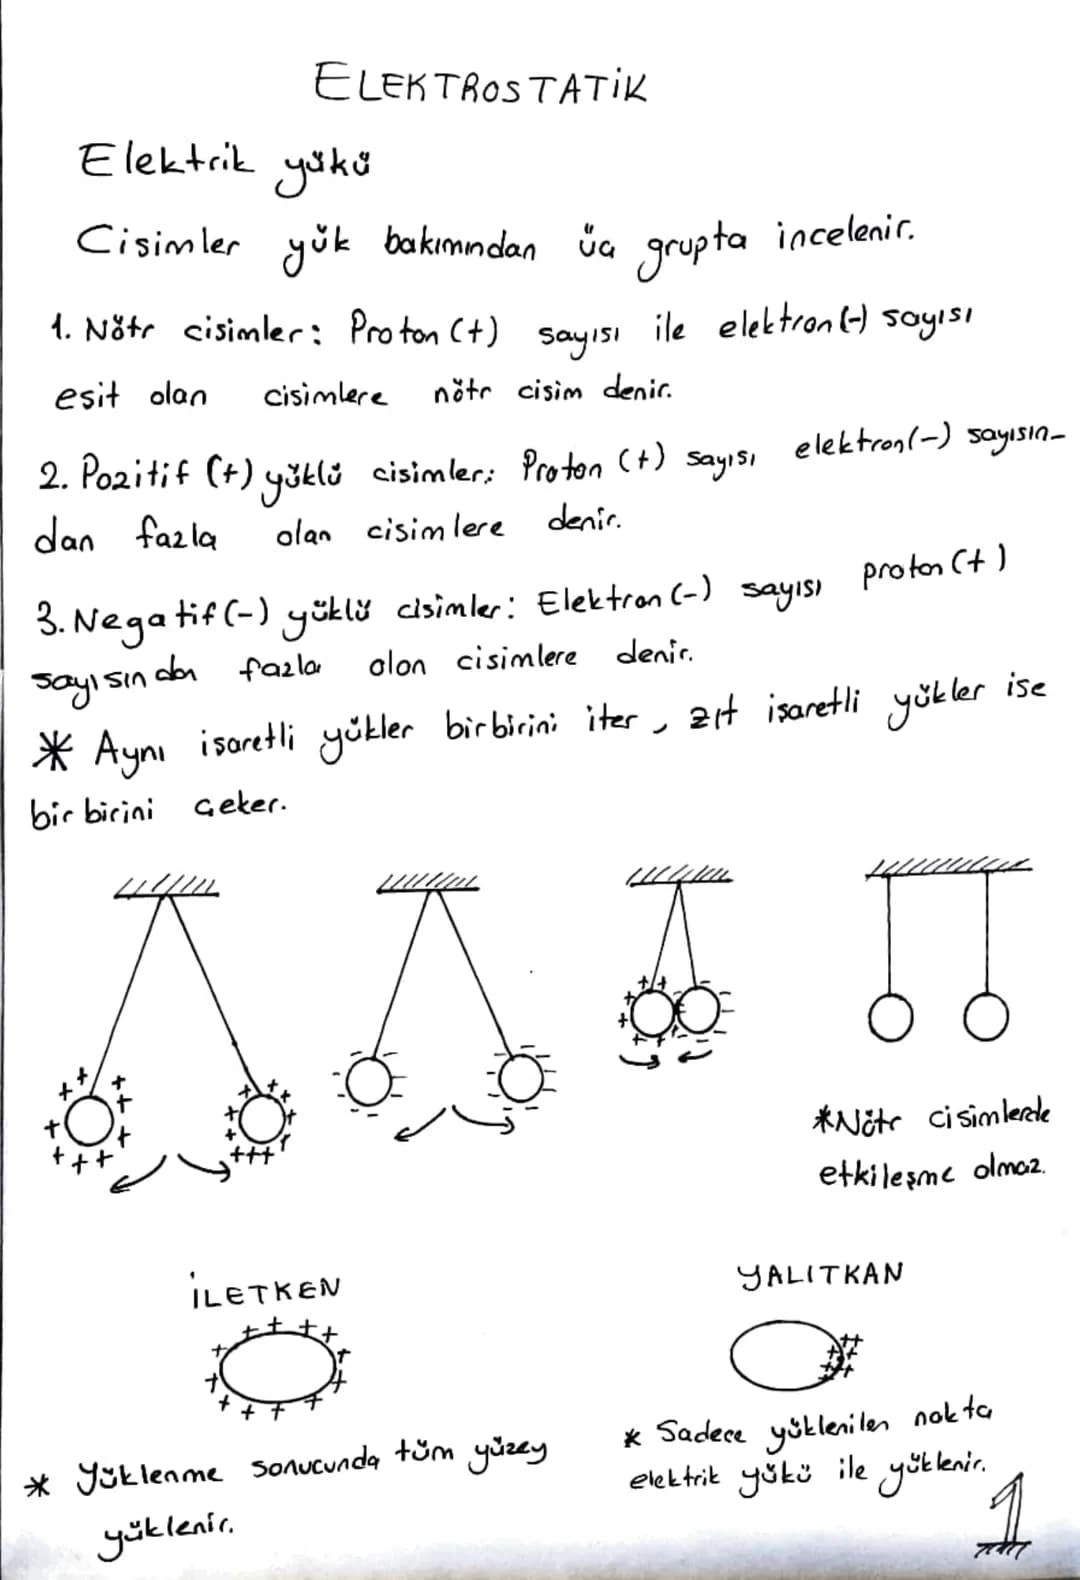 ELEKTROSTATİK
Elektrik yükü
Cisimler yük bakımından üç grupta incelenir.
1. Nötr cisimler: Proton (+) sayısı ile elektron (-) sayısı
eşit olan cisimlere nötr cisim denir.
2. Pozitif (+) yüklü cisimler: Proton (+) sayısı elektron (-) sayısın-
dan fazla olan cisimlere denir.
3. Negatif (-) yüklü cisimler: Elektron (-) sayısı proton (+)
sayısından fazla olan cisimlere denir.
* Aynı işaretli yükler birbirini iter, zıt işaretli yükler ise
bir birini çeker.
*Nötr cisimlerde
etkileşme olmaz.
İLETKEN
YALITKAN
* Yüklenme sonucunda tüm yüzey
yüklenir.
* Sadece yüklenilen nokta
elektrik yükü ile yüklenir.
1